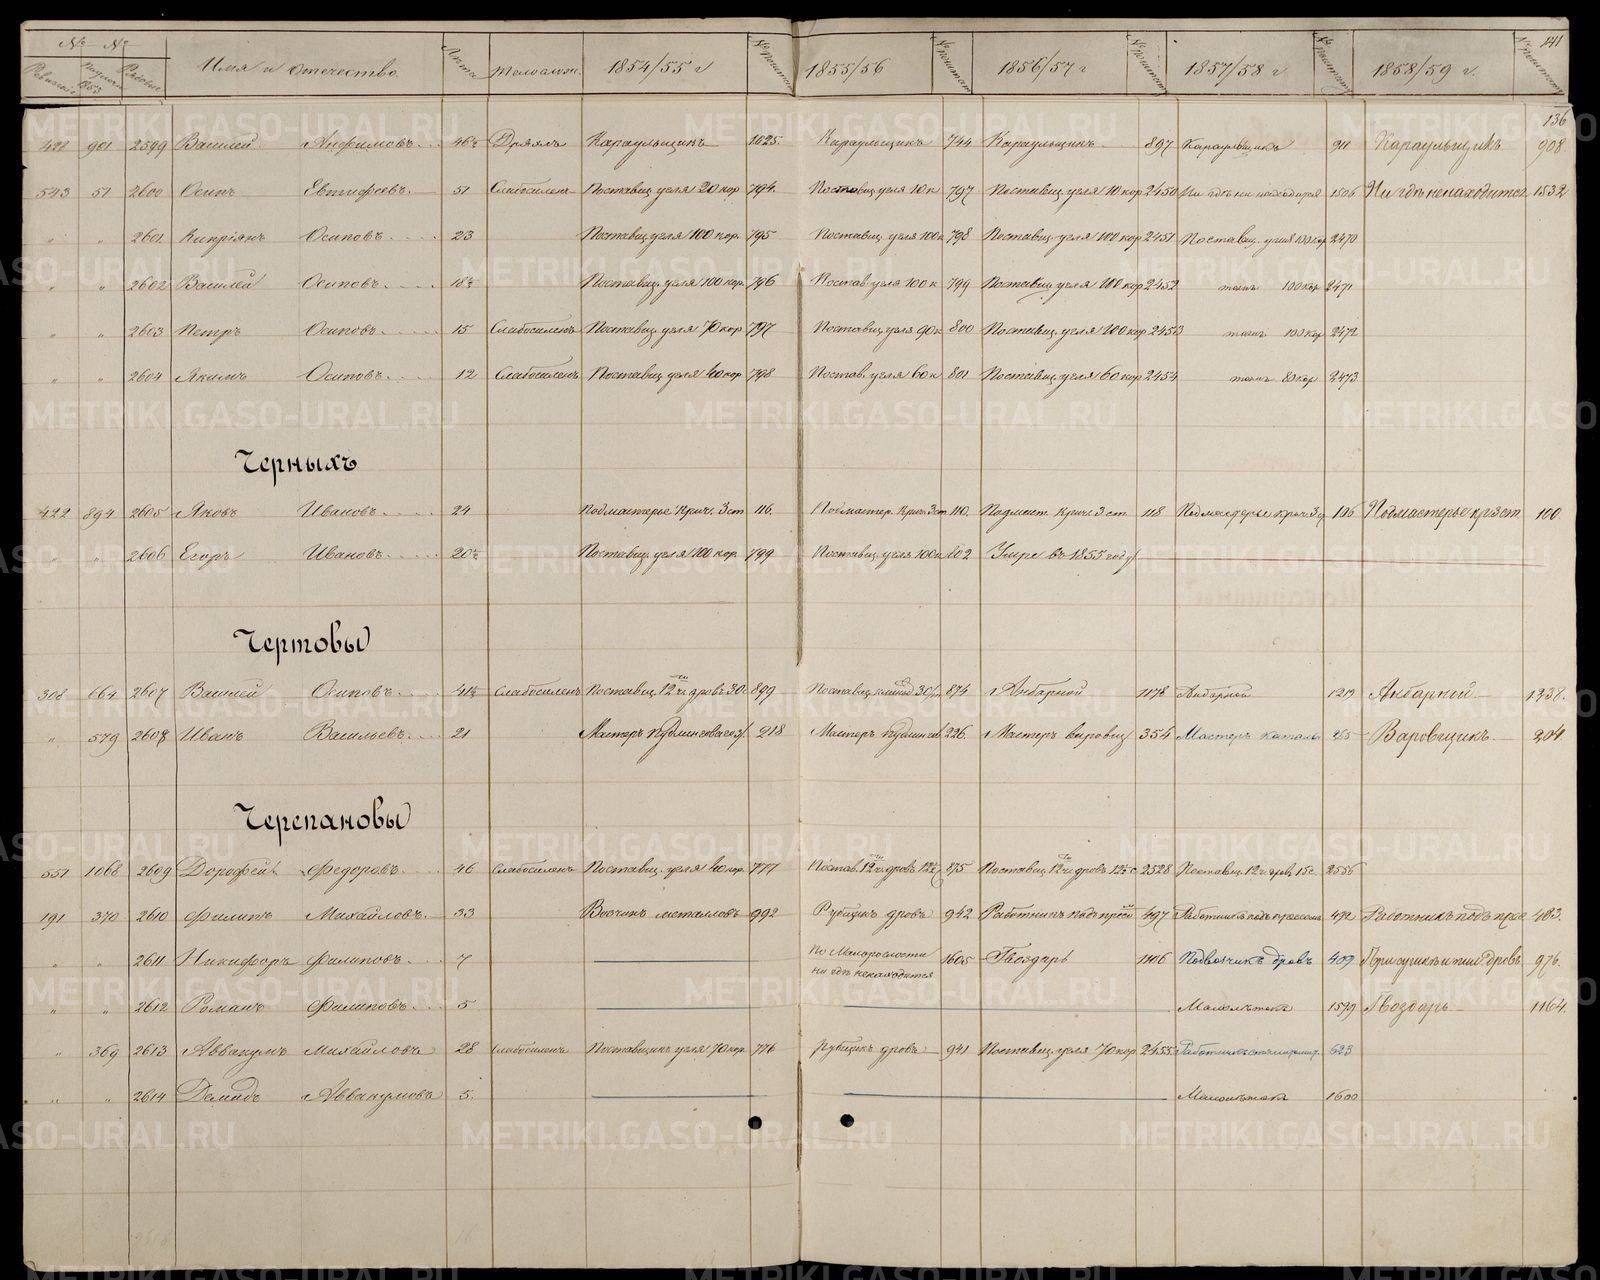 № № Имя и отечество Лѣта Телослож. 1854/55 г № по штату 1855/56 № по штат 1856/57 г № по штату 1857/58 г № по штату 1858/59 г. № по штату 141
Ревизскій 1853 Рядовые
136
428 901 2599 Василей Анфимовъ 46½ Дряхлъ Караульщикъ 1025. Караульщикъ 744 Караульщикъ 897 Караульщикъ 911 Караульщикъ 908.
543 51 2600 Осипъ Евтифѣевъ 51 Слабосиленъ Поставщ. угля 20 кор 794. Поставщ угля 10 к 797 Поставщ угля 10 кор 2450 Ни гдѣ не находится 1506 Ни гдѣ ненаходится 1532
" " 2601 Кипріянъ Осиповъ 23 Поставщ угля 100 кор. 795 Поставщ. угля 100 к 798 Поставщ. угля 100 кор 2451 Поставщ. угля 100 кор 2470
" " 2602 Василей Осиповъ 18½ Поставщ. угля 100 кор. 796 Постав. угля 100 к 799 Поставщ угля 100 кор 2452 тожъ 100 кор 2471
" " 2603 Петръ Осиповъ 15 Слабосиленъ Поставщ угля 70 кор 797 Поставщ угля 90 к 800 Поставщ. угля 100 кор 2453 тожъ 100 кор 2472
" " 2604 Якимъ Осиповъ 12 Слабосиленъ Поставщ угля 40 кор 798 Постав. угля 60 к 801 Поставщ. угля 60 кор 2454 тожъ 80 кор 2473
Черныхъ
422 894 2605 Яковъ Ивановъ 24 Подмастерье Крич. 3 ст 116. Подмастер. Крич. 3 ст 110. Подмаст. Крич. 3 ст. 118 Подмастерье крич 3 с 106 Подмастерье кр 3 ст 100.
" " 2606 Егоръ Ивановъ 20½ Поставщ. угля 100 кор 799 Поставщ. угля 100 к 802 Умре въ 1855 году
Чертовы
308 664 2607 Василей Осиповъ 41½ Слабосиленъ Поставщ. 12 чт дровъ 30 с 899 Поставщ 30 874 Анбарной 1178 Анбарной 1219 Анбарной 1237.
" 579 2608 Иванъ Васильевъ 21 Мастеръ Пудлинговагоз 218 Мастеръ Пудлингов 226 Мастеръ 354 Мастеръ 265 Варовщикъ 204.
Черепановы
551 1068 2609 Дорофей Федоровъ 46 Слабосиленъ Поставщ. угля 40 кор 777 Постав. 12 чт дровъ 12½ с 875 Поставщ. 12 чт дровъ 12½ с 2528 Поставщ. 12 чт дров. 15 с. 2556
191 370 2610 Филипъ Михайловъ 33 Возчикъ металловъ 992 Рубщикъ дровъ 942 Работникъ подъ пресс 497 Работникъ подъ прессомъ 492 Работникъ подъ прес 483.
" " 2611 Никифоръ Филиповъ 7 по Малорослости 1605 Гвоздарь 1106 Подвозчикъ дровъ 409 При сушкѣ и пил дровъ 976.
ни гдѣ ненаходится
" " 2612 Романъ Филиповъ 5 Малолѣтенъ 1599 Гвоздарь 1164.
" 369 2613 Аввакумъ Михайловъ 28 Слабосиленъ Поставщикъ угля 70 кор 776 Рубщикъ дровъ 941 Поставщ. угля 70 кор 2455 Работникъ 623
" " 2614 Демидъ Аввакумовъ 5. Малолѣтенъ 1600
METRIKI.GASO-URAL.RU